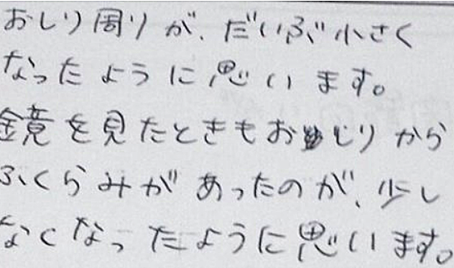 おしり周りが、だいぶ小さく
なったように思います。
鏡を見たときもおしりから
ふくらみがあったのが、少し
なくなったように思います。